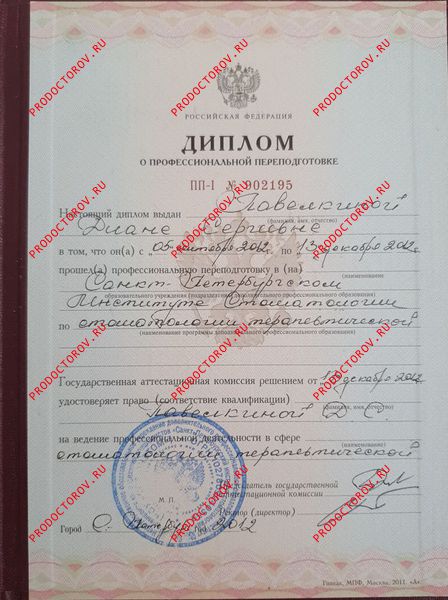 РОССИЙСКАЯ ФЕДЕРАЦИЯ
ДИПЛОМ
О ПРОФЕССИОНАЛЬНОЙ ПЕРЕПОДГОТОВКЕ
ПП-I № 902195
Настоящий диплом выдан Павелкиной
(фамилия, имя, отчество)
Диане Сергеевне
в том, что он(а) с 05 сентября 2012 г. по 13 декабря 2012 г.
прошел(а) профессиональную переподготовку в (на)
(наименование
Санкт-Петербургском
образовательного учреждения (подразделения) дополнительного профессионального образования)
Институте Стоматологии
по стоматологии терапевтической
(наименование программы дополнительного профессионального образования)
Государственная аттестационная комиссия решением от 13 декабря 2012
удостоверяет право (соответствие квалификации)
(фамилия, имя, отчество)
Павелкиной Д С
на ведение профессиональной деятельности в сфере
(наименование)
стоматологии терапевтической
Председатель государственной
аттестационной комиссии
М. П.
Ректор (директор)
Город С. Петербург 2012
Гознак, МПФ, Москва, 2011, «А»
PRODOCTOROV.RU